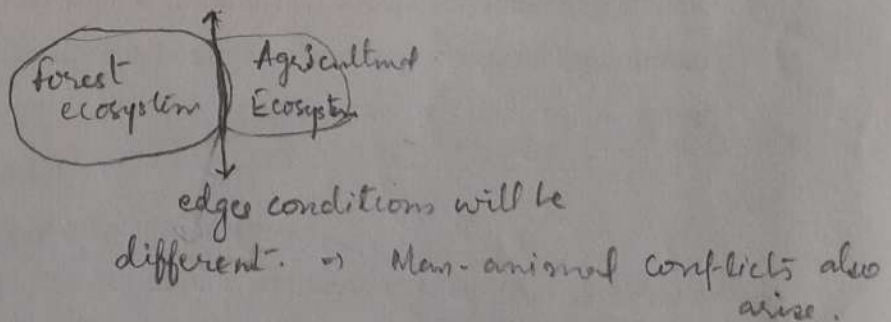 forest
ecosystem
Agricultural
Ecosystem
edges conditions will be
different. => Man-animal conflicts also
arise.